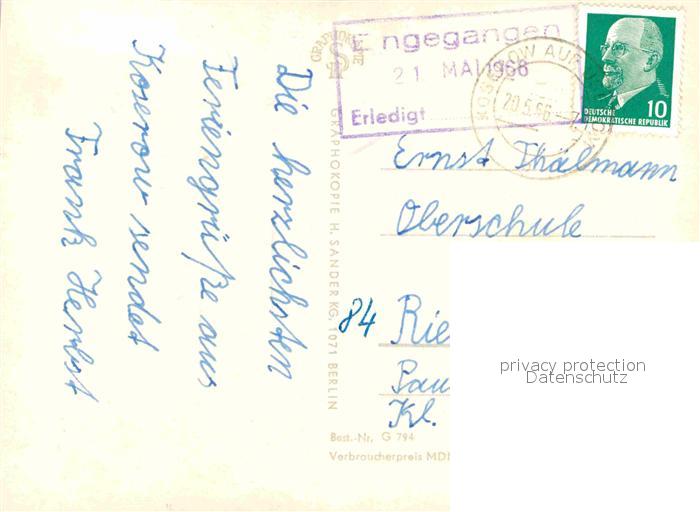 Die herzlichsten
Feriengrüße aus
Koserow sendet
Frank Herbst
GRAPHOKOPIE
GRAPHOKOPIE H. SANDER KG, 1071 BERLIN
Eingegangen
21 MAI 1966
Erledigt
KOSEROW AUF
20.5.66
DEUTSCHE
DEMOKRATISCHE REPUBLIK
10
Ernst Thälmann
Oberschule
84 Rie
Pau
Kl.
privacy protection
Datenschutz
Best.-Nr. G 794
Verbraucherpreis MD